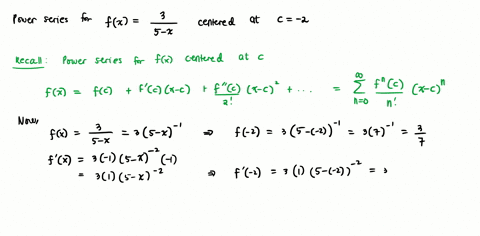 Power series for f(x) = 3/(5-x) centered at c = -2
Recall: Power series for f(x) centered at c
f(x) = f(c) + f'(c)(x-c) + f''(c)/2! (x-c)² + ... = ∑_{n=0}^{∞} fⁿ(c)/n! (x-c)ⁿ
Now, f(x) = 3/(5-x) = 3(5-x)⁻¹ ⇒ f(-2) = 3(5-(-2))⁻¹ = 3(7)⁻¹ = 3/7
f'(x) = 3(-1)(5-x)⁻²(-1)
= 3(1)(5-x)⁻² ⇒ f'(-2) = 3(1)(5-(-2))⁻² = 3